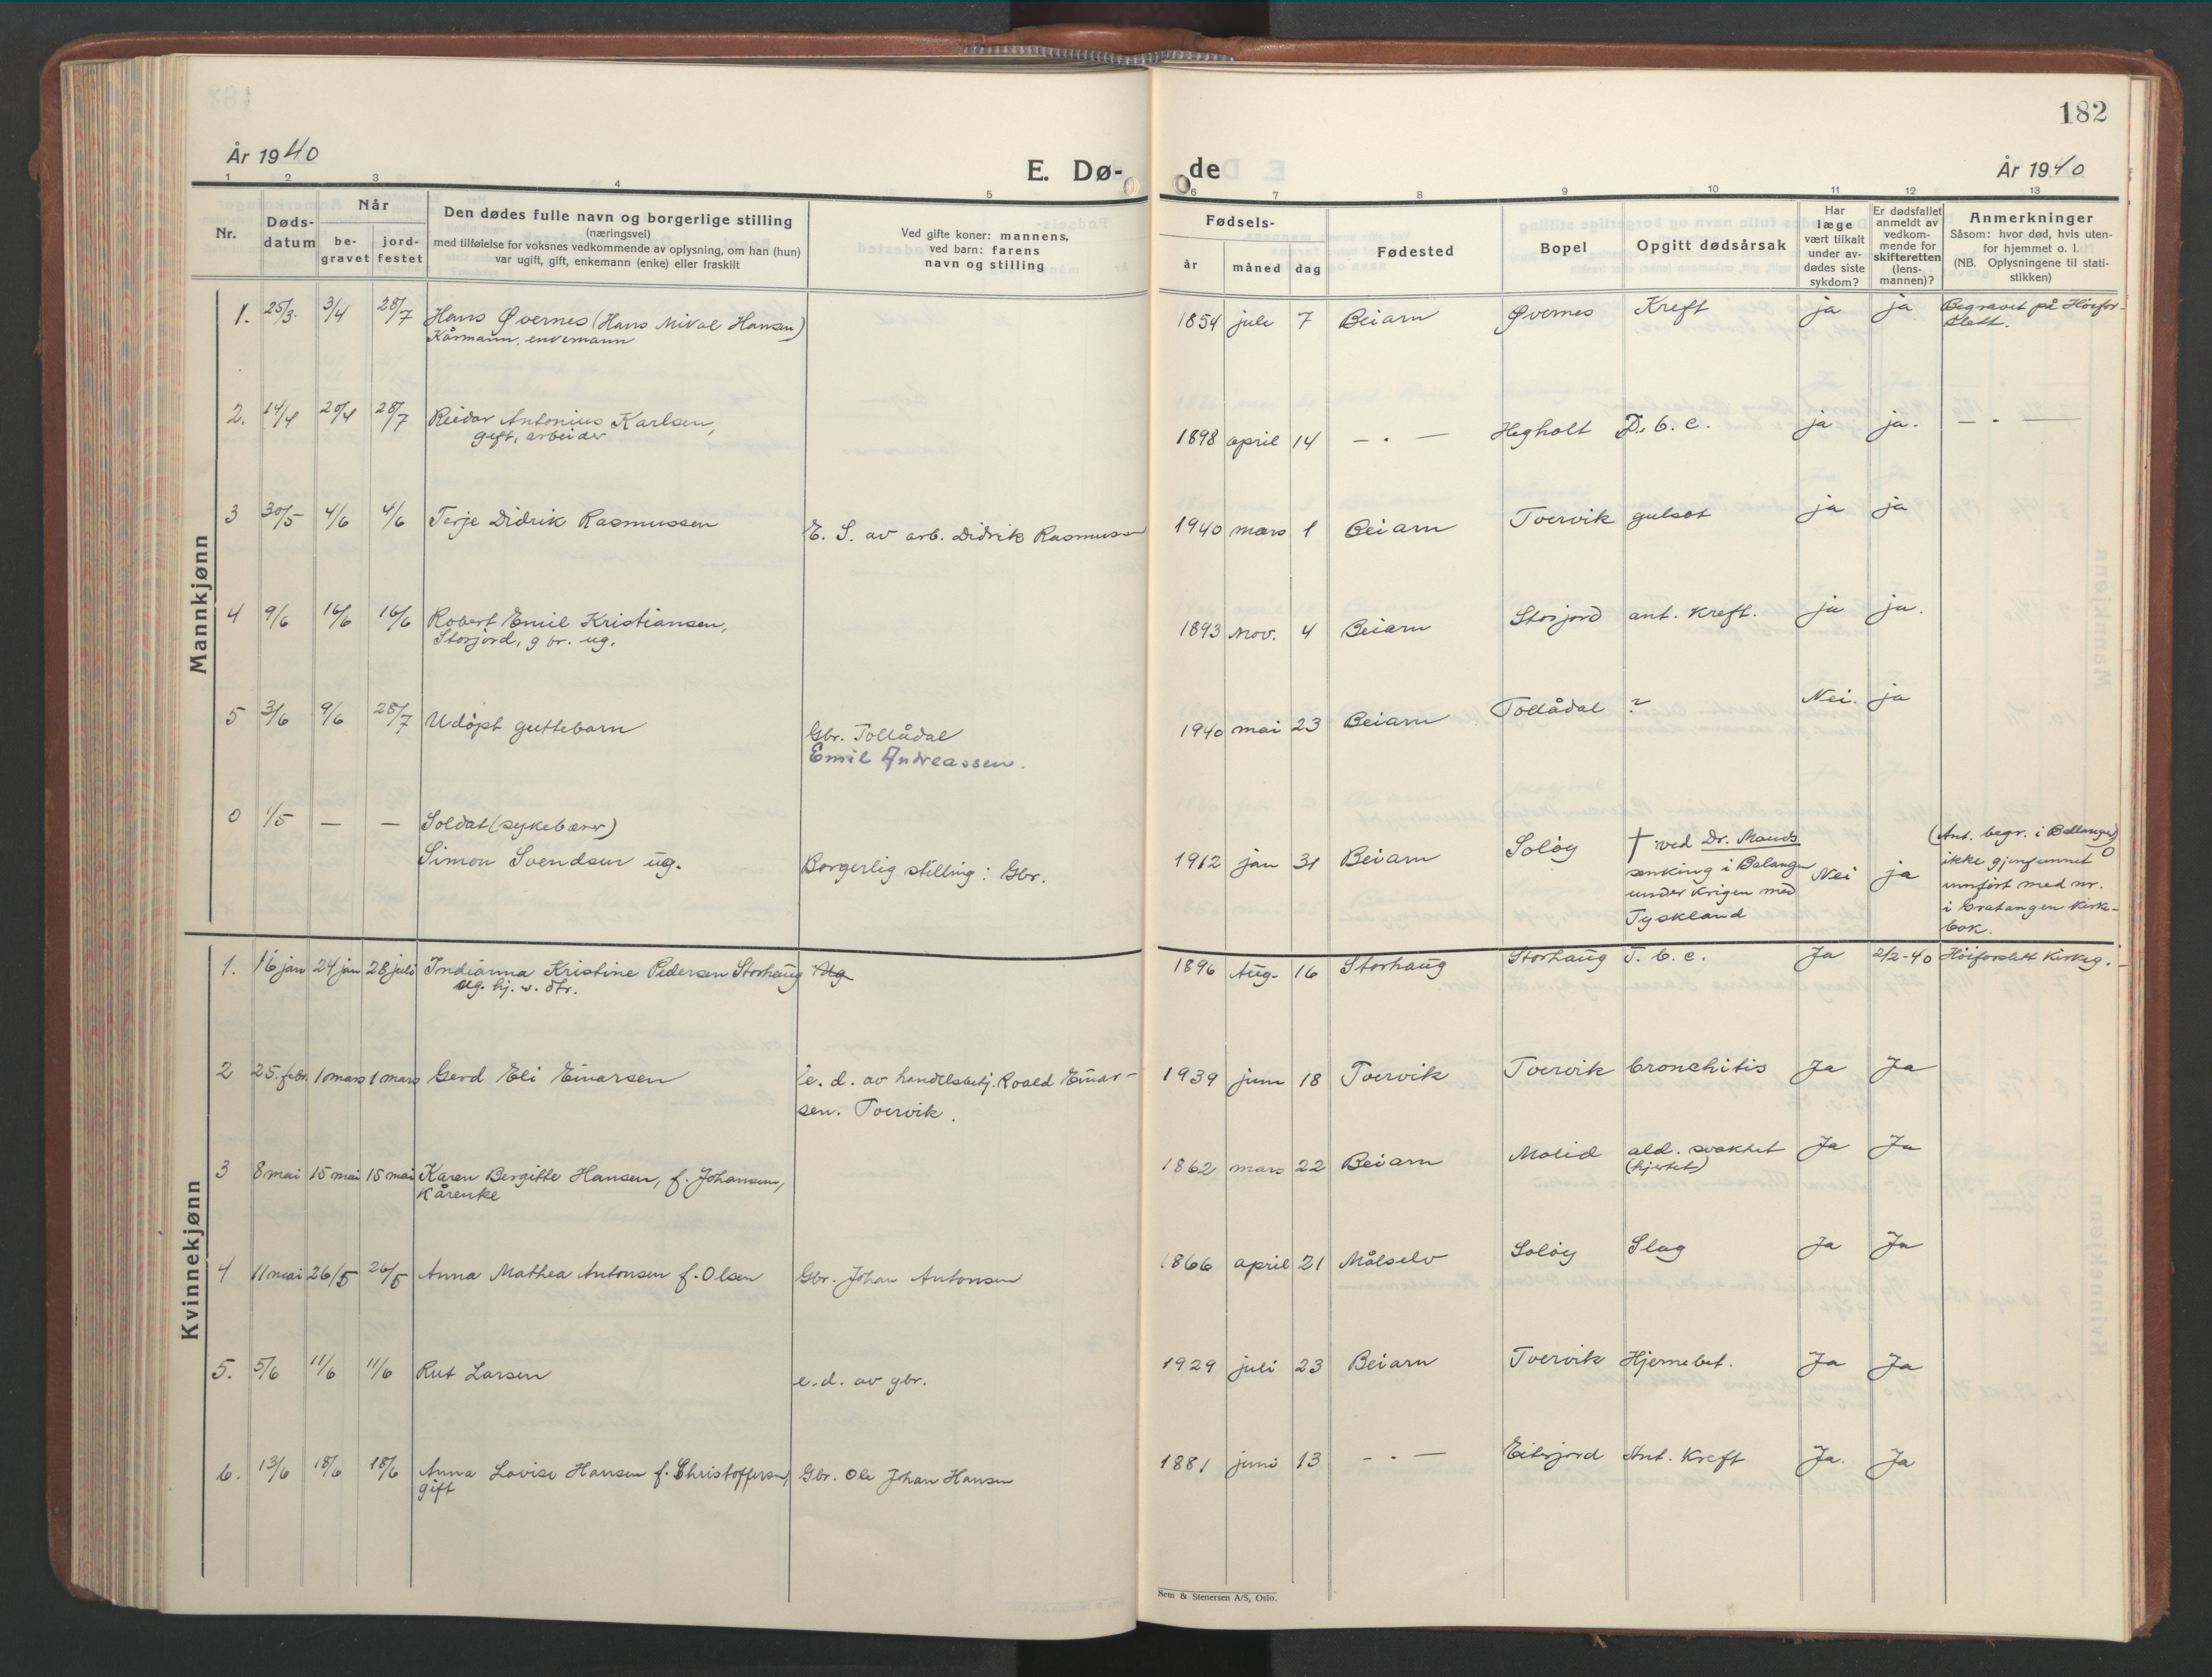 182
År 1940
E. Dø-
de
År 1940
1 2 3 4 5 6 7 8 9 10 11 12 13
Nr.
Døds-
datum
Når
be-
gravet
jord-
festet
Den dødes fulle navn og borgerlige stilling
(næringsvei)
med tilføielse for voksnes vedkommende av oplysning, om han (hun)
var ugift, gift, enkemann (enke) eller fraskilt
Ved gifte koner: mannens,
ved barn: farens
navn og stilling
Fødsels-
år måned dag
Fødested
Bopel
Opgitt dødsårsak
Har
læge
vært tilkalt
under av-
dødes siste
sykdom?
Er dødsfallet
anmeldt av
vedkom-
mende for
skifteretten
(lens-
mannen)?
Anmerkninger
Såsom: hvor død, hvis uten-
for hjemmet o. l.
(NB. Oplysningene til stati-
stikken)
Mannkjønn
1. 25/3. 3/4 28/7 Hans Øvernes (Hans Mikal Hansen) 1854 juli 7 Beiarn Øvernes Kreft ja ja Begravet på Höifor-
Kårmann, enkemann slett.
2. 14/4 20/4 28/7 Reidar Antonius Karlsen, 1898 april 14 — . — Hegholt D. b. c. ja ja. — . —
gift, arbeider
3 30/5 4/6 4/6 Terje Didrik Rasmussen E. S. av arb. Didrik Rasmussen 1940 mars 1 Beiarn Tvervik gulsot ja ja
4 9/6 16/6 16/6 Robert Emil Kristiansen, 1893 Nov. 4 Beiarn Storjord ant. kreft. ja ja.
Storjord, gbr. ug.
5 3/6 9/6 28/7 Udöpt guttebarn Gbr. Tollådal 1940 mai 23 Beiarn Tollådal ? Nei. ja
Emil Andreassen.
0 1/5 — — Soldat (sykebærer)
Simon Svendsen ug. Borgerlig stilling: Gbr. 1912 jan 31 Beiarn Solöy † ved Dr. Mauds Nei ja (Ant. begr. i Ballangen)
senking i Balangen ikke gjenfunnet
under krigen med innfört med nr. 0
Tyskland i Gratangen kirke-
bok.
Kvinnekjønn
1. 16 jan 24 jan 28 juli Indianna Kristine Pedersen Storhaug Ug 1896 Aug. 16 Storhaug Storhaug T. b. c. Ja 2/2-40 Höiforslett kirkeg.
ug. hj. v. dtr.
2 25. febr. 1 mars 1 mars Gerd Eli Einarsen e. d. av handelsbetj. Roald Einar- 1939 juni 18 Tvervik Tvervik bronchitis Ja Ja
sen. Tvervik.
3 8 mai 15 mai 15 mai Karen Bergitte Hansen, f. Johansen, 1862 mars 22 Beiarn Molid ald. svakhet Ja Ja
kårenke (hjertet)
4 11 mai 26/5 26/5 Anna Mathea Antonsen f. Olsen Gbr. Johan Antonsen 1866 april 21 Målselv Solöy Slag Ja Ja
5. 5/6 11/6 11/6 Rut Larsen e.d. av gbr. 1929 juli 23 Beiarn Tvervik Hjernebet. Ja Ja
6. 13/6 18/6 18/6 Anna Lovise Hansen f. Christoffersen, Gbr. Ole Johan Hansen 1881 juni 13 — . — Eiterjord Ant. Kreft Ja. Ja
gift
Sem & Stenersen A/S, Oslo.